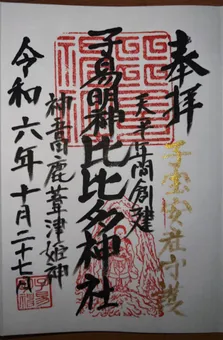 奉拝
子宝安産守護
天平年間創建
子易明神比比多神社
神吾田鹿葦津姫神
令和六年十月二十七日